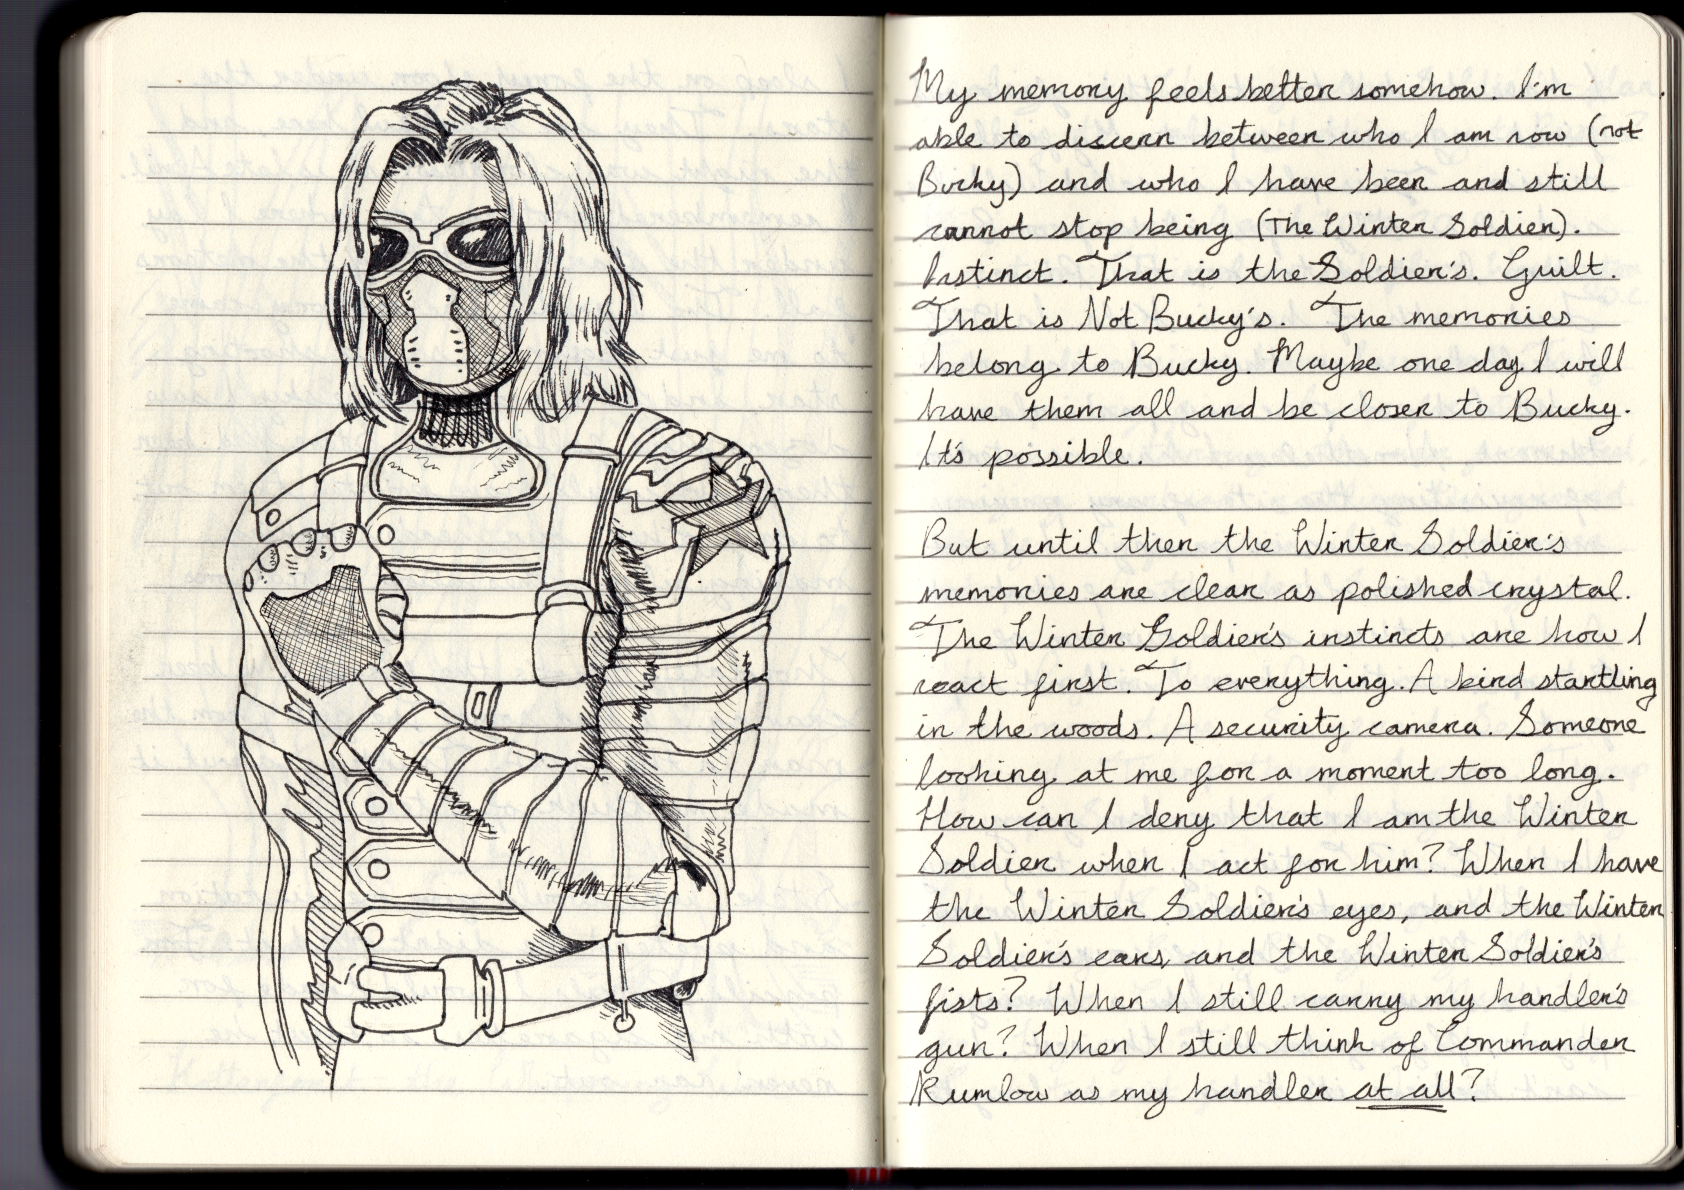 My memory feels better somehow. I'm
able to discern between who I am now (not
Bucky) and who I have been and still
cannot stop being (The Winter Soldier).
Instinct. That is the Soldier's. Guilt.
That is Not Bucky's. The memories
belong to Bucky. Maybe one day I will
have them all and be closer to Bucky.
It's possible.
But until then the Winter Soldier's
memories are clear as polished crystal.
The Winter Soldier's instincts are how I
react first. To everything. A bird startling
in the woods. A security camera. Someone
looking at me for a moment too long.
How can I deny that I am the Winter
Soldier when I act for him? When I have
the Winter Soldier's eyes, and the Winter
Soldier's ears, and the Winter Soldier's
fists? When I still carry my handler's
gun? When I still think of Commander
Rumlow as my handler at all?